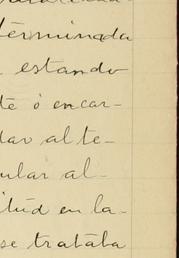 terminada
estando
te ó encar-
dar al te-
ular al-
itud en la-
se trataba